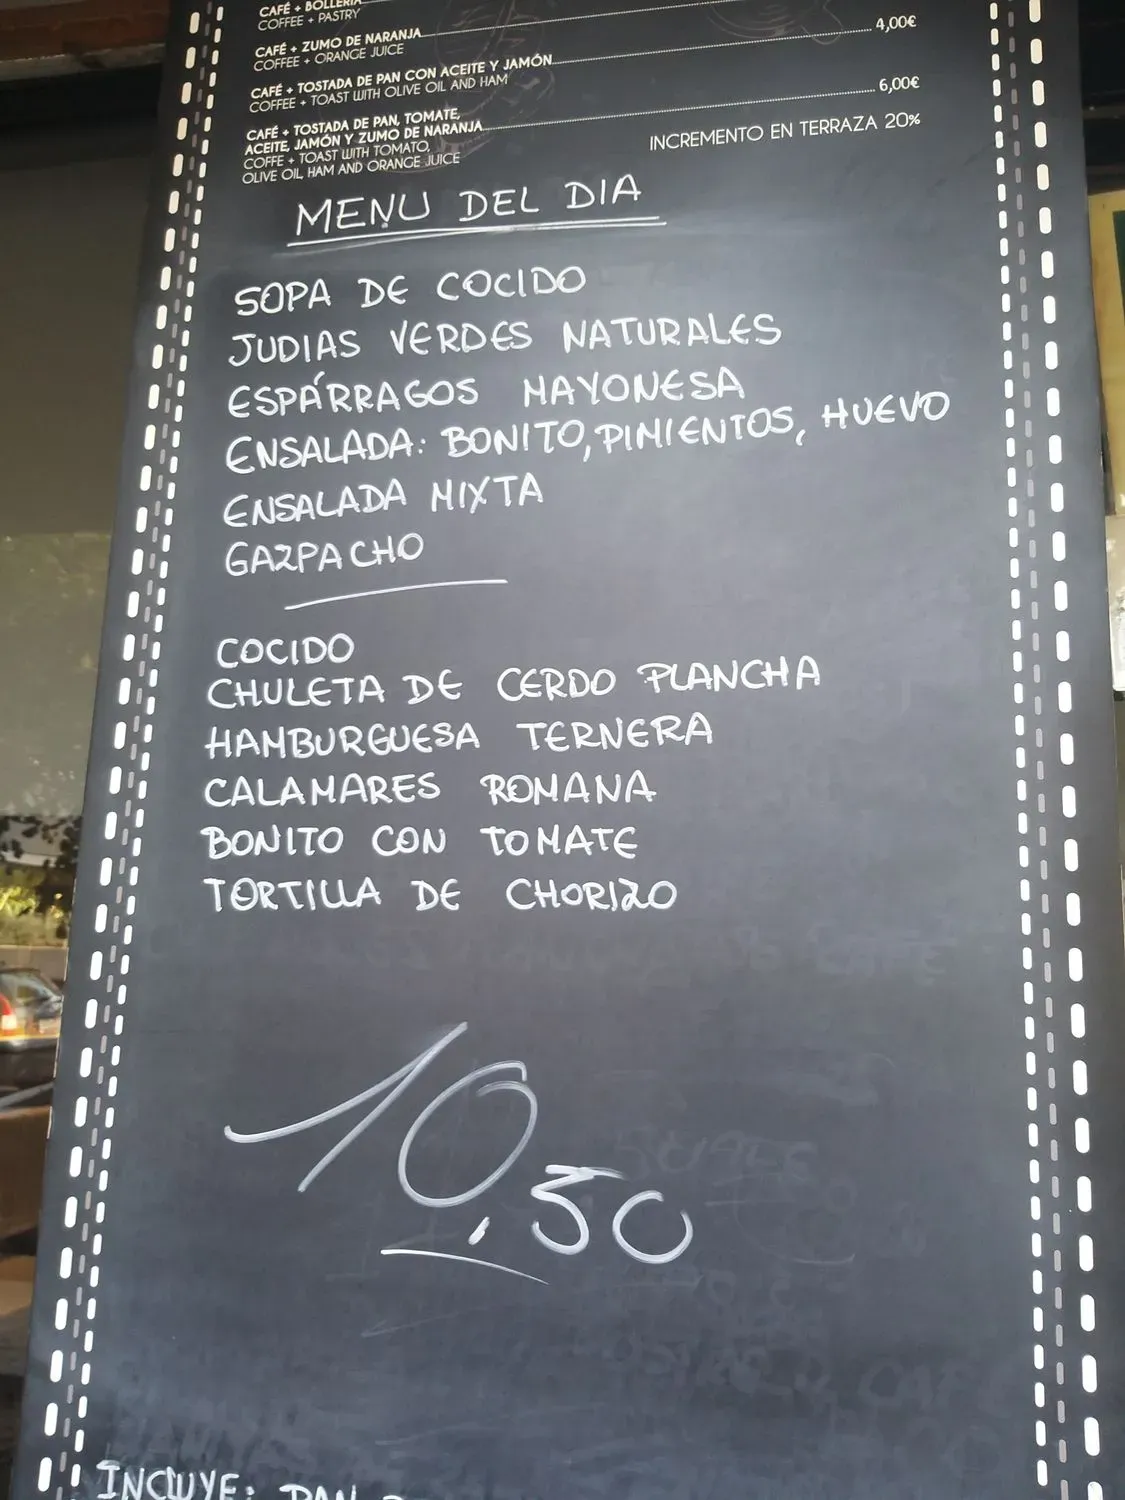 CAFÉ + BOLLERIA
COFFEE + PASTRY
CAFÉ + ZUMO DE NARANJA
COFFEE + ORANGE JUICE
4,00€
CAFÉ + TOSTADA DE PAN CON ACEITE Y JAMÓN
COFFEE + TOAST WITH OLIVE OIL AND HAM
6,00€
CAFÉ + TOSTADA DE PAN, TOMATE,
ACEITE, JAMÓN Y ZUMO DE NARANJA
COFFE + TOAST WITH TOMATO,
OLIVE OIL, HAM AND ORANGE JUICE
INCREMENTO EN TERRAZA 20%
MENU DEL DIA
SOPA DE COCIDO
JUDIAS VERDES NATURALES
ESPÁRRAGOS MAYONESA
ENSALADA: BONITO, PIMIENTOS, HUEVO
ENSALADA MIXTA
GAZPACHO
COCIDO
CHULETA DE CERDO PLANCHA
HAMBURGUESA TERNERA
CALAMARES ROMANA
BONITO CON TOMATE
TORTILLA DE CHORIZO
10,50
INCLUYE: PAN